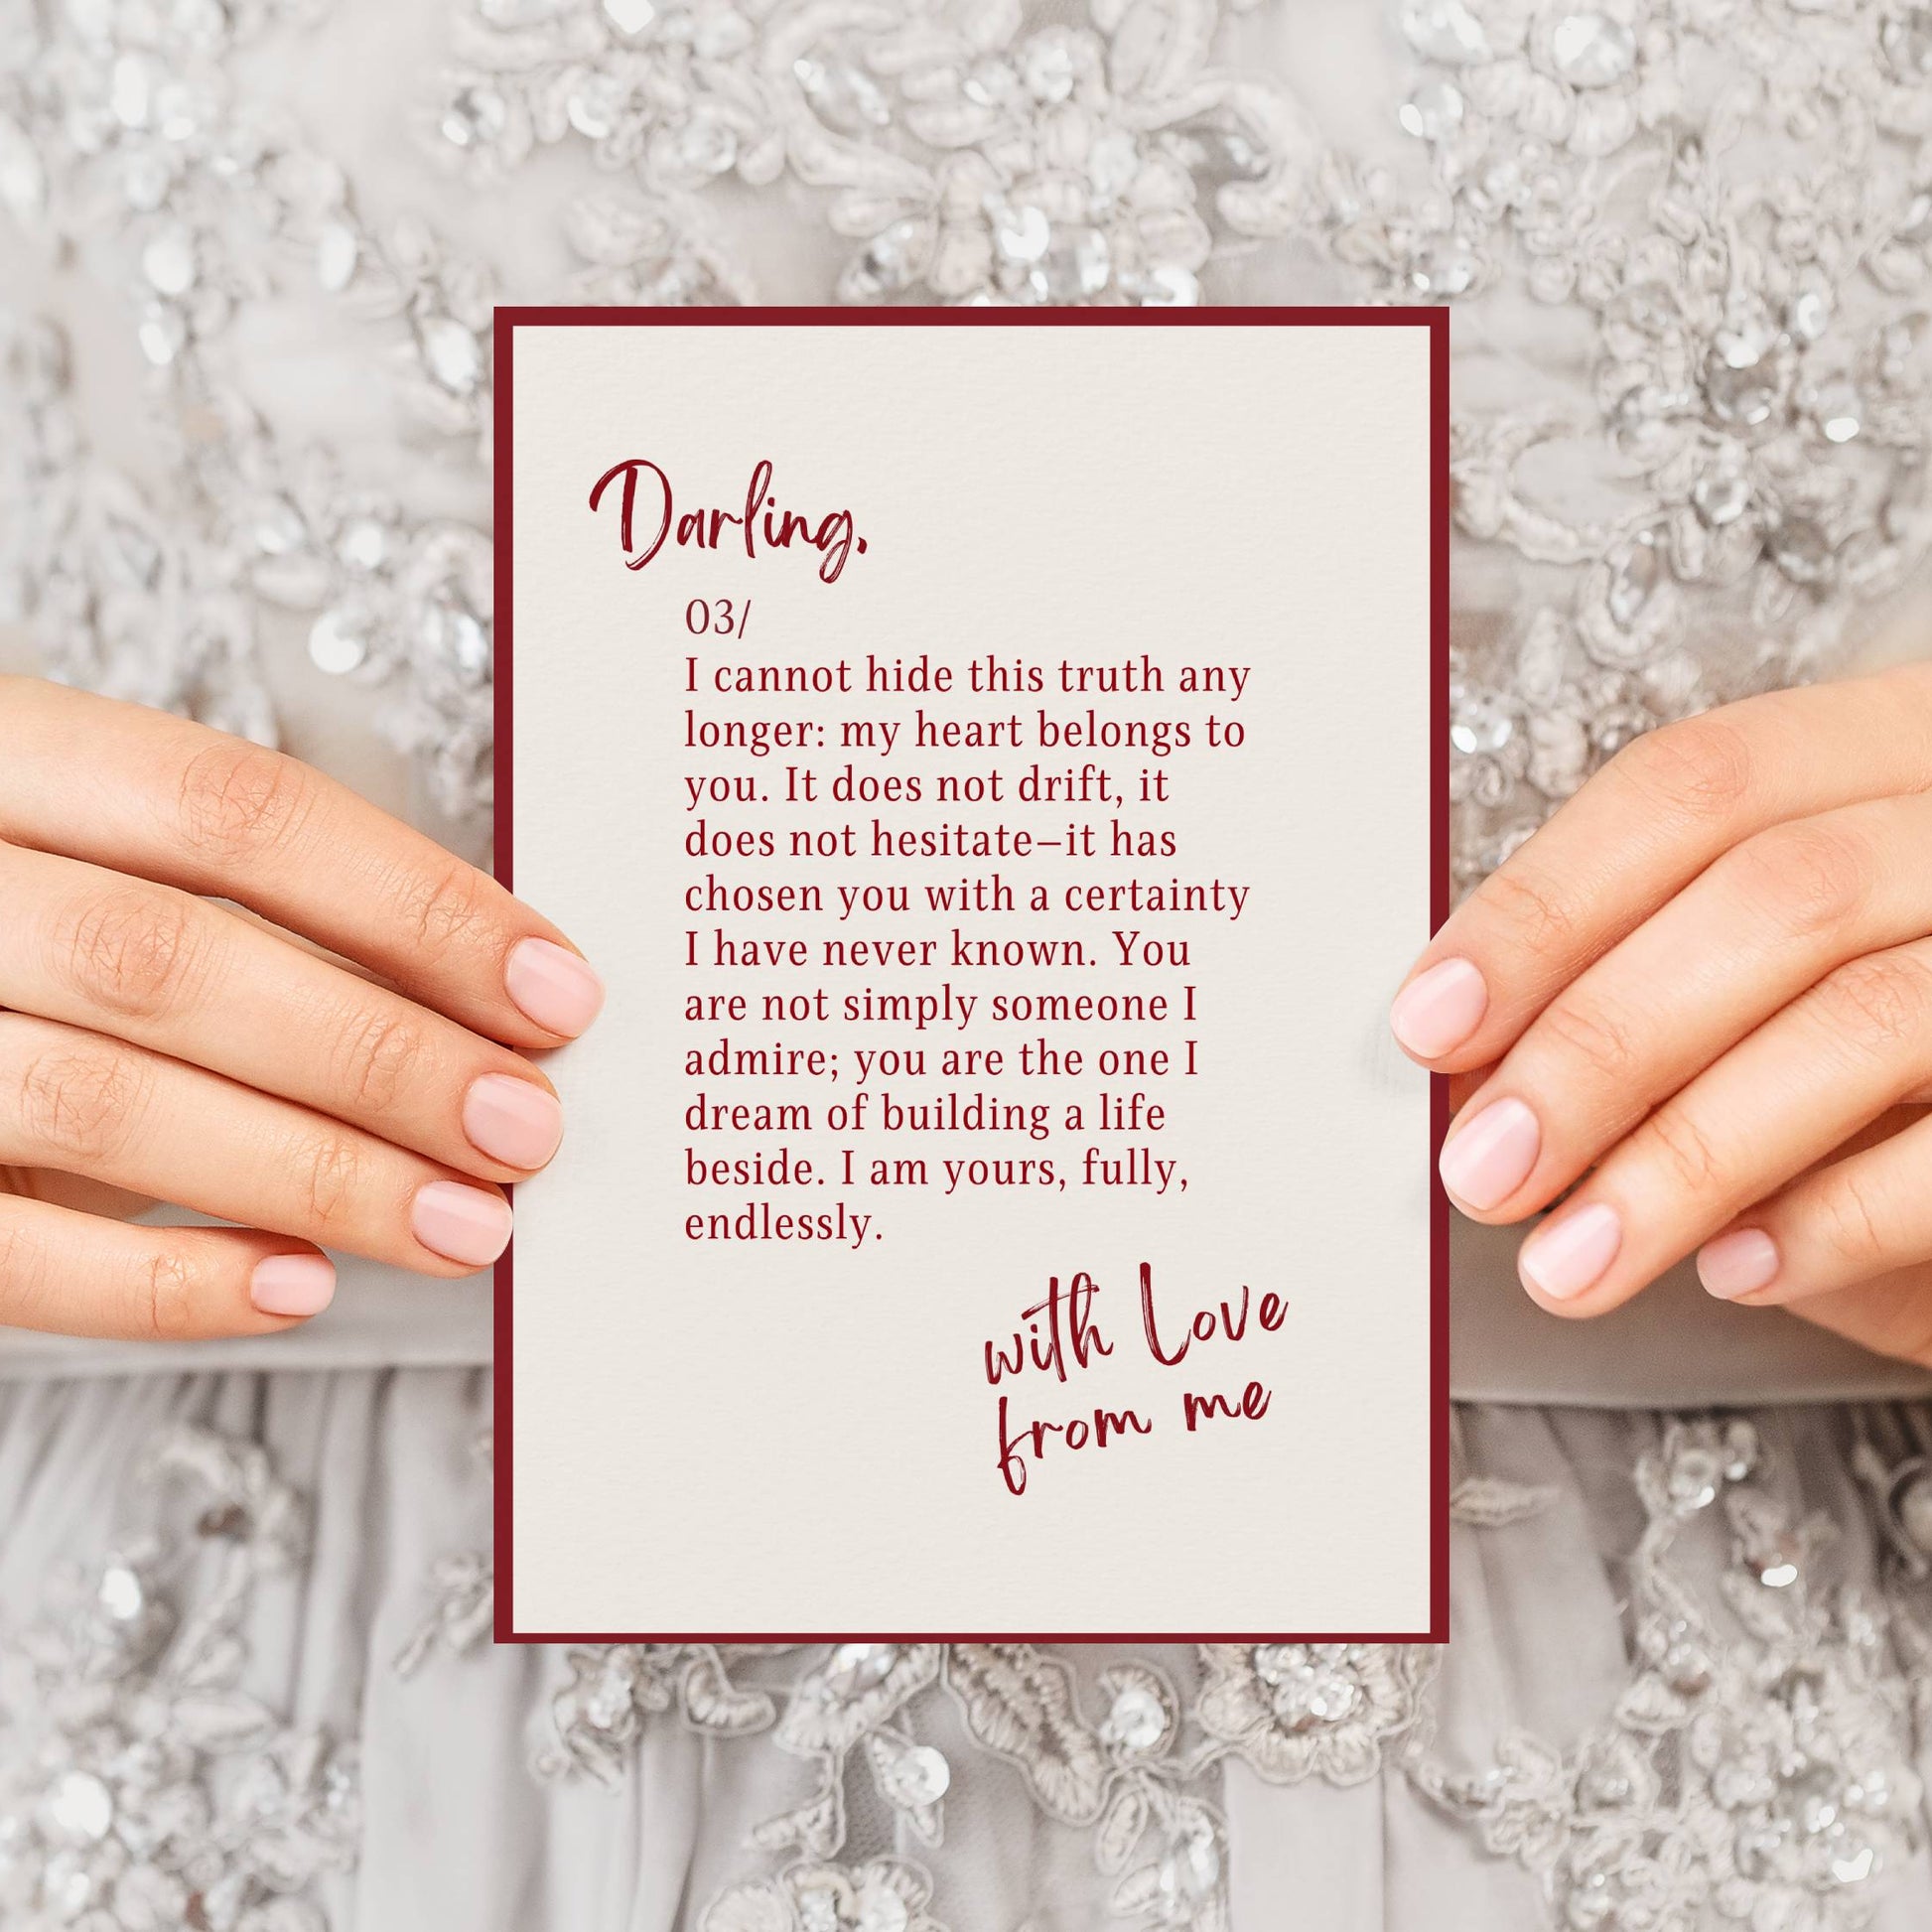 Darling,
03/
I cannot hide this truth any
longer: my heart belongs to
you. It does not drift, it
does not hesitate—it has
chosen you with a certainty
I have never known. You
are not simply someone I
admire; you are the one I
dream of building a life
beside. I am yours, fully,
endlessly.
with Love
from me